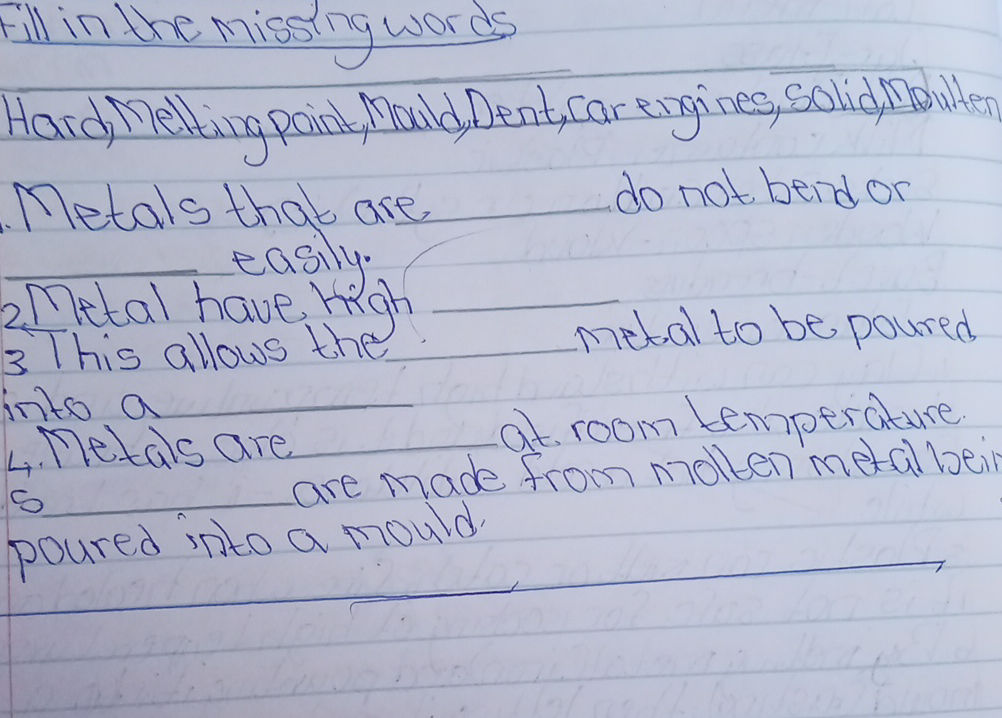 Fill in the missing words
Hard, Melting point, Mould, Dent, Car engines, Solid, Moulten
1. Metals that are ________ do not bend or
________ easily.
2. Metal have High ________
3 This allows the ________ metal to be poured
into a ________
4. Metals are ________ at room temperature.
5 ________ are made from molten metal bein
poured into a mould.